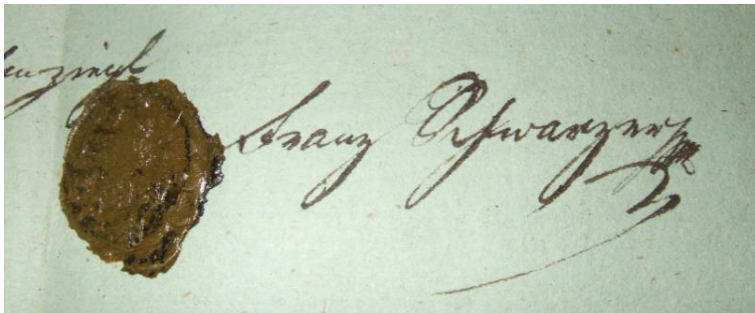 Franz Schwarzer